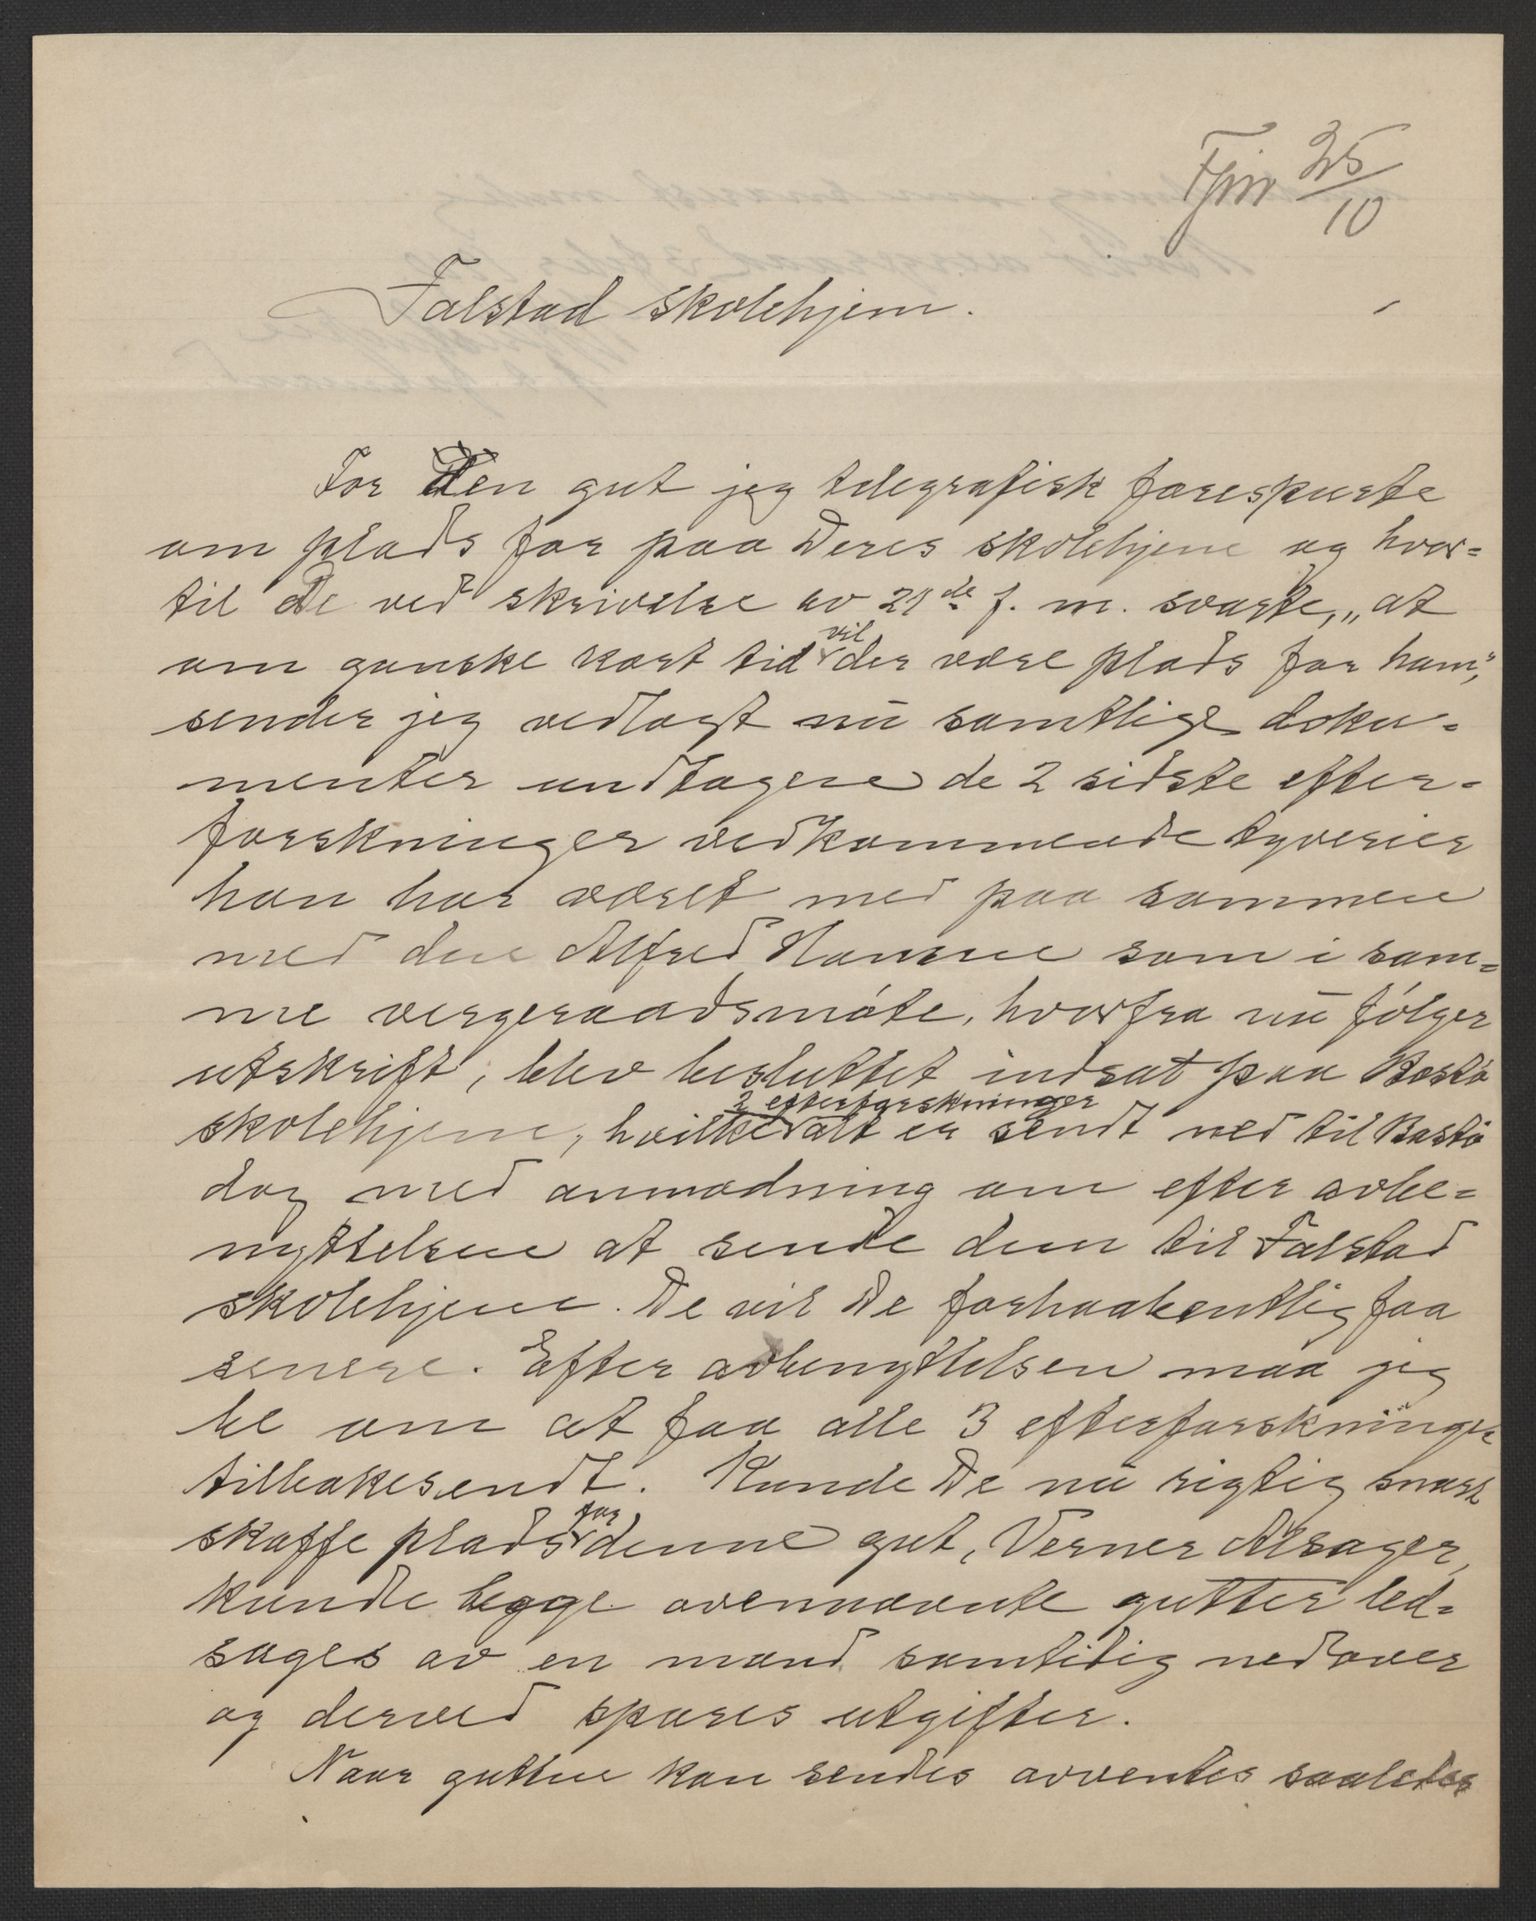 25/10
Falstad skolehjem.
For den gut jeg telegrafisk forespurte
om plads for paa Deres skolehjem og hvor=
til De ved skrivelse av 21de f. m. svarte, „at
om ganske kort tid vil der være plads for ham",
sender jeg vedlagt nu samtlige doku=
menter undtagen de 2 sidste efter=
forskninger vedkommende tyverier
han har været med paa sammen
med den Alfred Hansen som i sam=
me vergeraadsmøte, hvorfra nu følger
utskrift, blev besluttet indsat paa Bastø
skolehjem, hvilke 2 efterforskninger alt er sendt ned til Bastø
dog med anmodning om efter avbe=
nyttelsen at sende dem til Falstad
skolehjem. De vil De forhaabentlig faa
senere. Efter avbenyttelsen maa jeg
be om at faa alle 3 efterforskninger
tilbakesendt. Kunde De nu rigtig snart
skaffe plads for denne gut, Verner Alsager,
kunde begge ovennævnte gutter led=
sages av en mand samtidig nedover
og derved spares utgifter.
Naar gutten kan sendes avventes saaledes